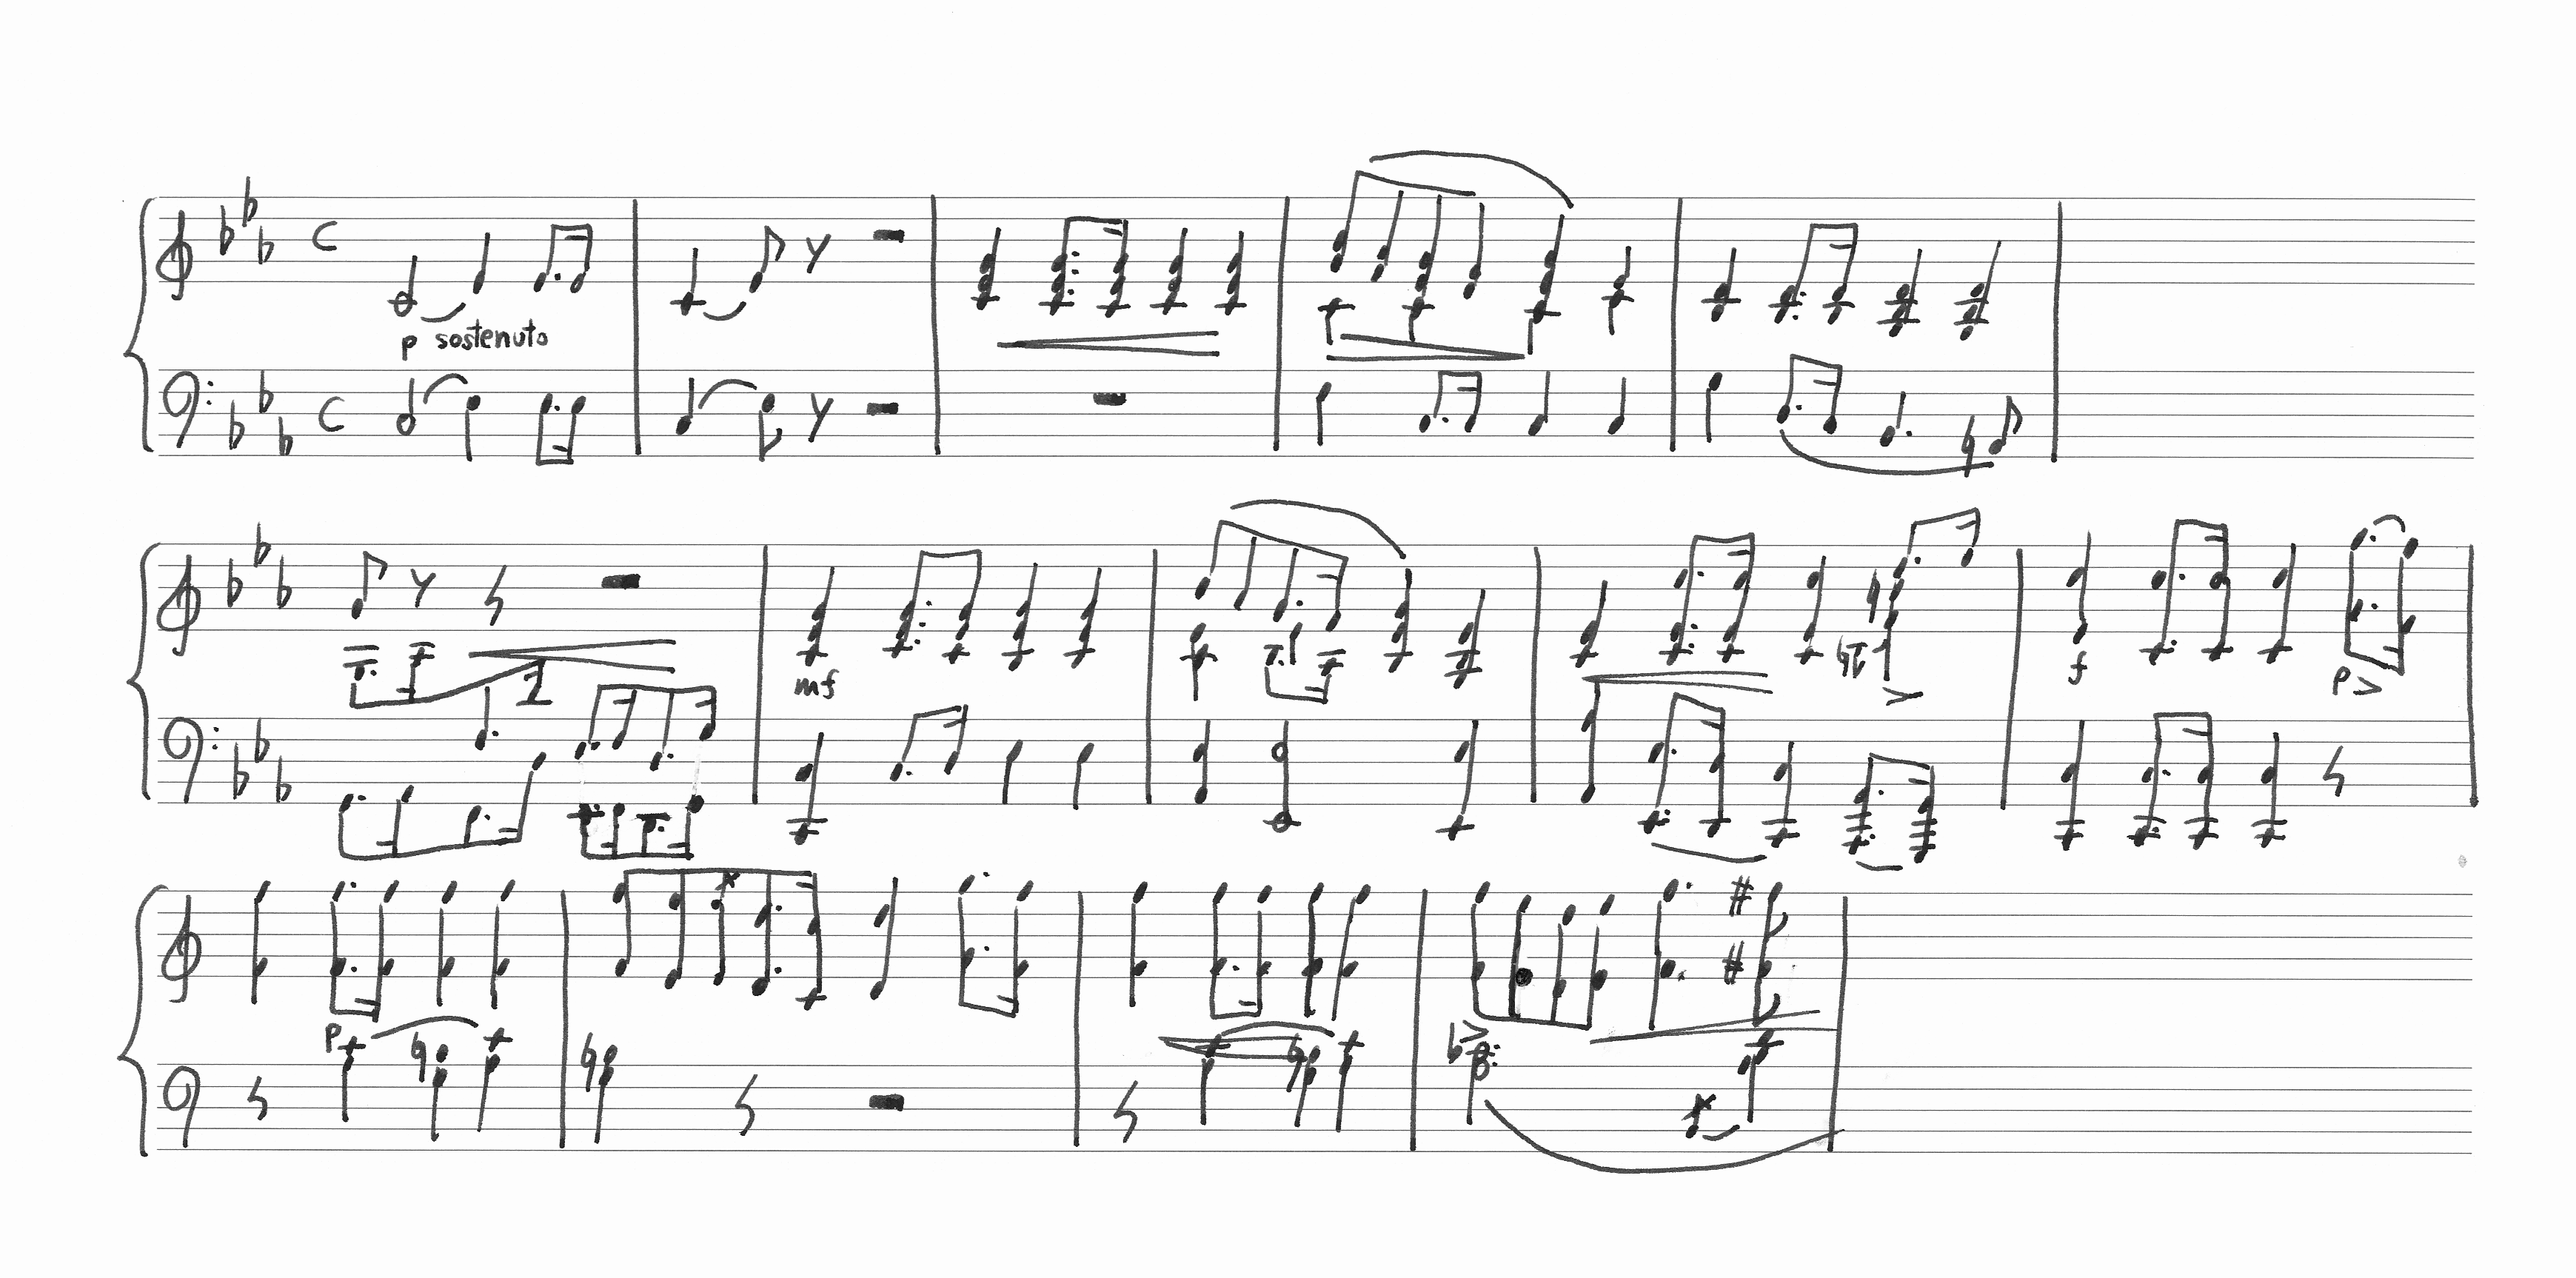 C
p sostenuto
C
mf
f
p
p